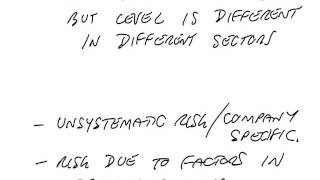 BUT LEVEL IS DIFFERENT
IN DIFFERENT SECTORS
- UNSYSTEMATIC RISK/COMPANY
SPECIFIC.
- RISK DUE TO FACTORS IN